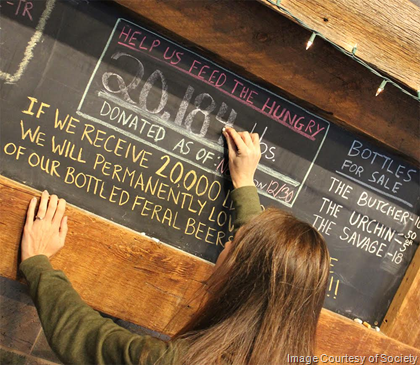 -TR
HELP US FEED THE HUNGRY
20,184 LBS.
DONATED AS OF NOON 12/30
IF WE RECEIVE 20000
WE WILL PERMANENTLY LOW
OF OUR BOTTLED FERAL BEER
!!
BOTTLES
FOR SALE
THE BUTCHER-
THE URCHIN-
THE SAVAGE-18
Image Courtesy of Society